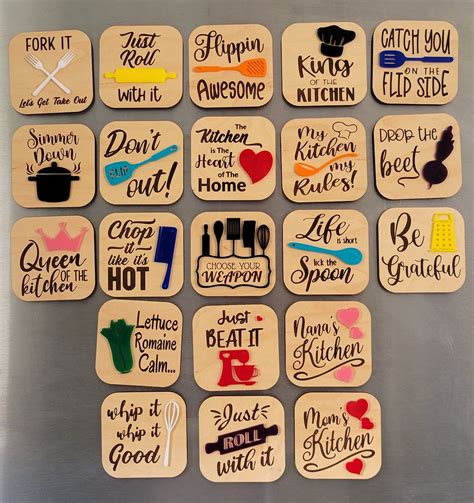 FORK IT
Let's Get Take Out
Just
Roll
with it
Flippin
Awesome
King
OF THE
KITCHEN
CATCH YOU
ON THE
FLIP SIDE
Simmer
Down
Don't
out!
The
Kitchen
IS THE
Heart
OF The
Home
My
Kitchen
my
Rules!
DROP THE
beet
Queen
OF THE
kitchen
Chop it
like it's
HOT
CHOOSE YOUR
WEAPON
Life
is short
lick the
Spoon
Be
Grateful
Lettuce
Romaine
Calm...
Just
BEAT IT
Nana's
Kitchen
whip it
whip it
Good
Just
ROLL
with it
Mom's
Kitchen